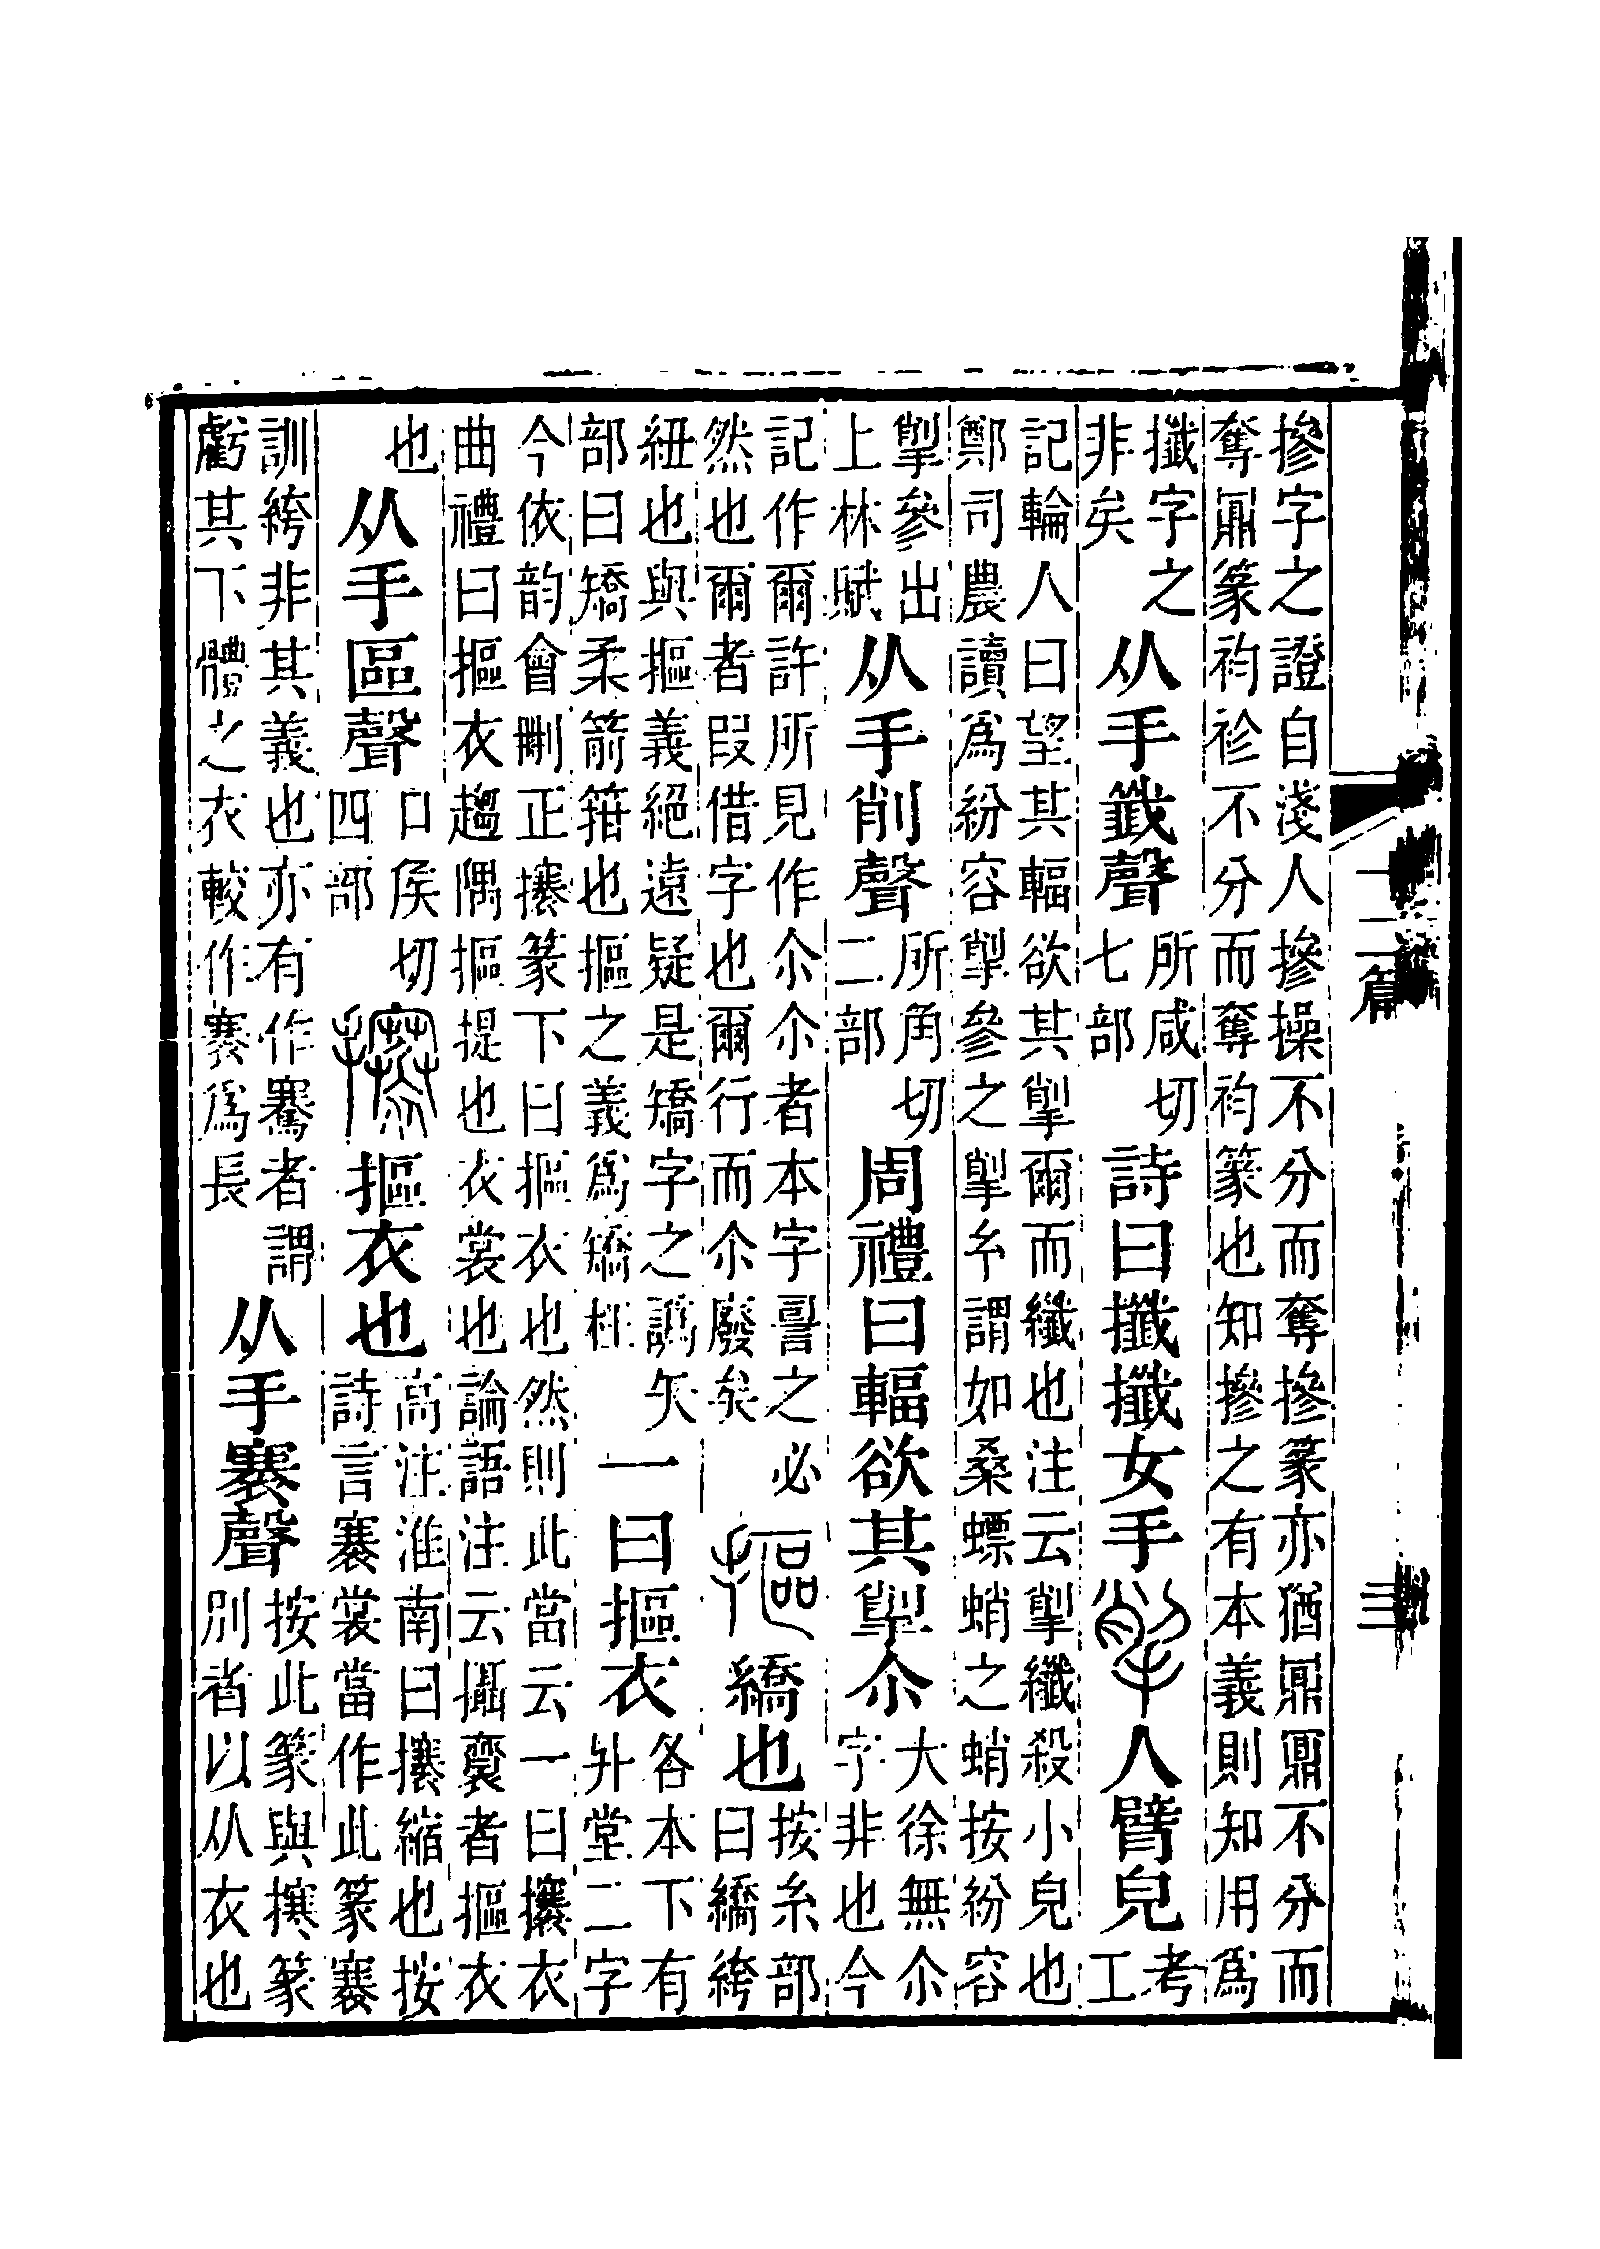 摻字之證自淺人摻操不分而奪摻篆亦猶鼏鼏不分而
奪鼏篆袀袗不分而奪袀篆也知摻之有本義則知用爲
攕字之
非矣
从手韱聲
所咸切
七部
詩曰攕攕女手
揱
人臂皃
考
工
記輪人曰望其輻欲其揱爾而纖也注云揱纖殺小皃也
鄭司農讀爲紛容揱參之揱玄謂如桑螵蛸之蛸按紛容
揱參出
上林賦
从手削聲
所角切
二部
周禮曰輻欲其揱尒
大徐無尒
字非也今
記作爾許所見作尒尒者本字䛐之必
然也爾者叚借字也爾行而尒廢矣
摳
繑也
按糸部
曰繑絝
紐也與摳義絕遠疑是矯字之譌矢
部曰矯柔箭箝也摳之義爲矯枉
一曰摳衣
各本下有
升堂二字
今依韵會刪正攐篆下曰摳衣也然則此當云一曰攐衣
曲禮曰摳衣趨隅摳提也衣裳也論語注云攝齋者摳衣
也
从手區聲
口矦切
四部
攐
摳衣也
高注淮南曰攐縮也按
詩言褰裳當作此篆褰
訓絝非其義也亦有作騫者謂
虧其下體之衣較作褰爲長
从手褰聲
按此篆與㩃篆
別者以从衣也
十二篇
三